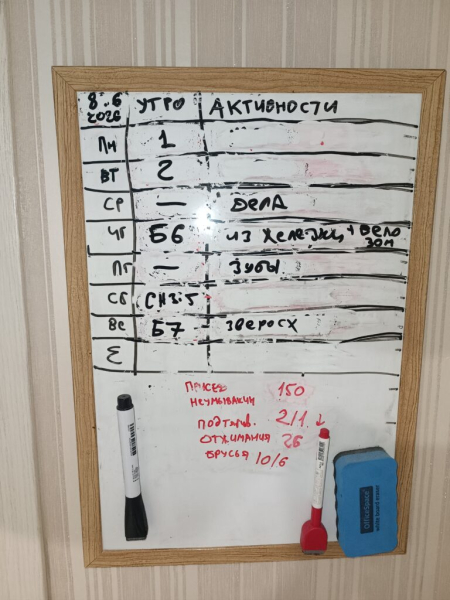 8.6 2026 УТРО АКТИВНОСТИ
ПН 1
ВТ 2
СР — ДЕЛА
ЧТ Б6 ИЗ + ВЕЛО
ПТ — ЗУБЫ
СБ
ВС Б7 - ЗВЕРОСХ
Σ
ПРИСЕД 150
НЕУМЫВАКИ
ПОДТЯГИВ. 2/1 ↓
ОТЖИМАНИЯ 26
БРУСЬЯ 10/6
OfficeSpace